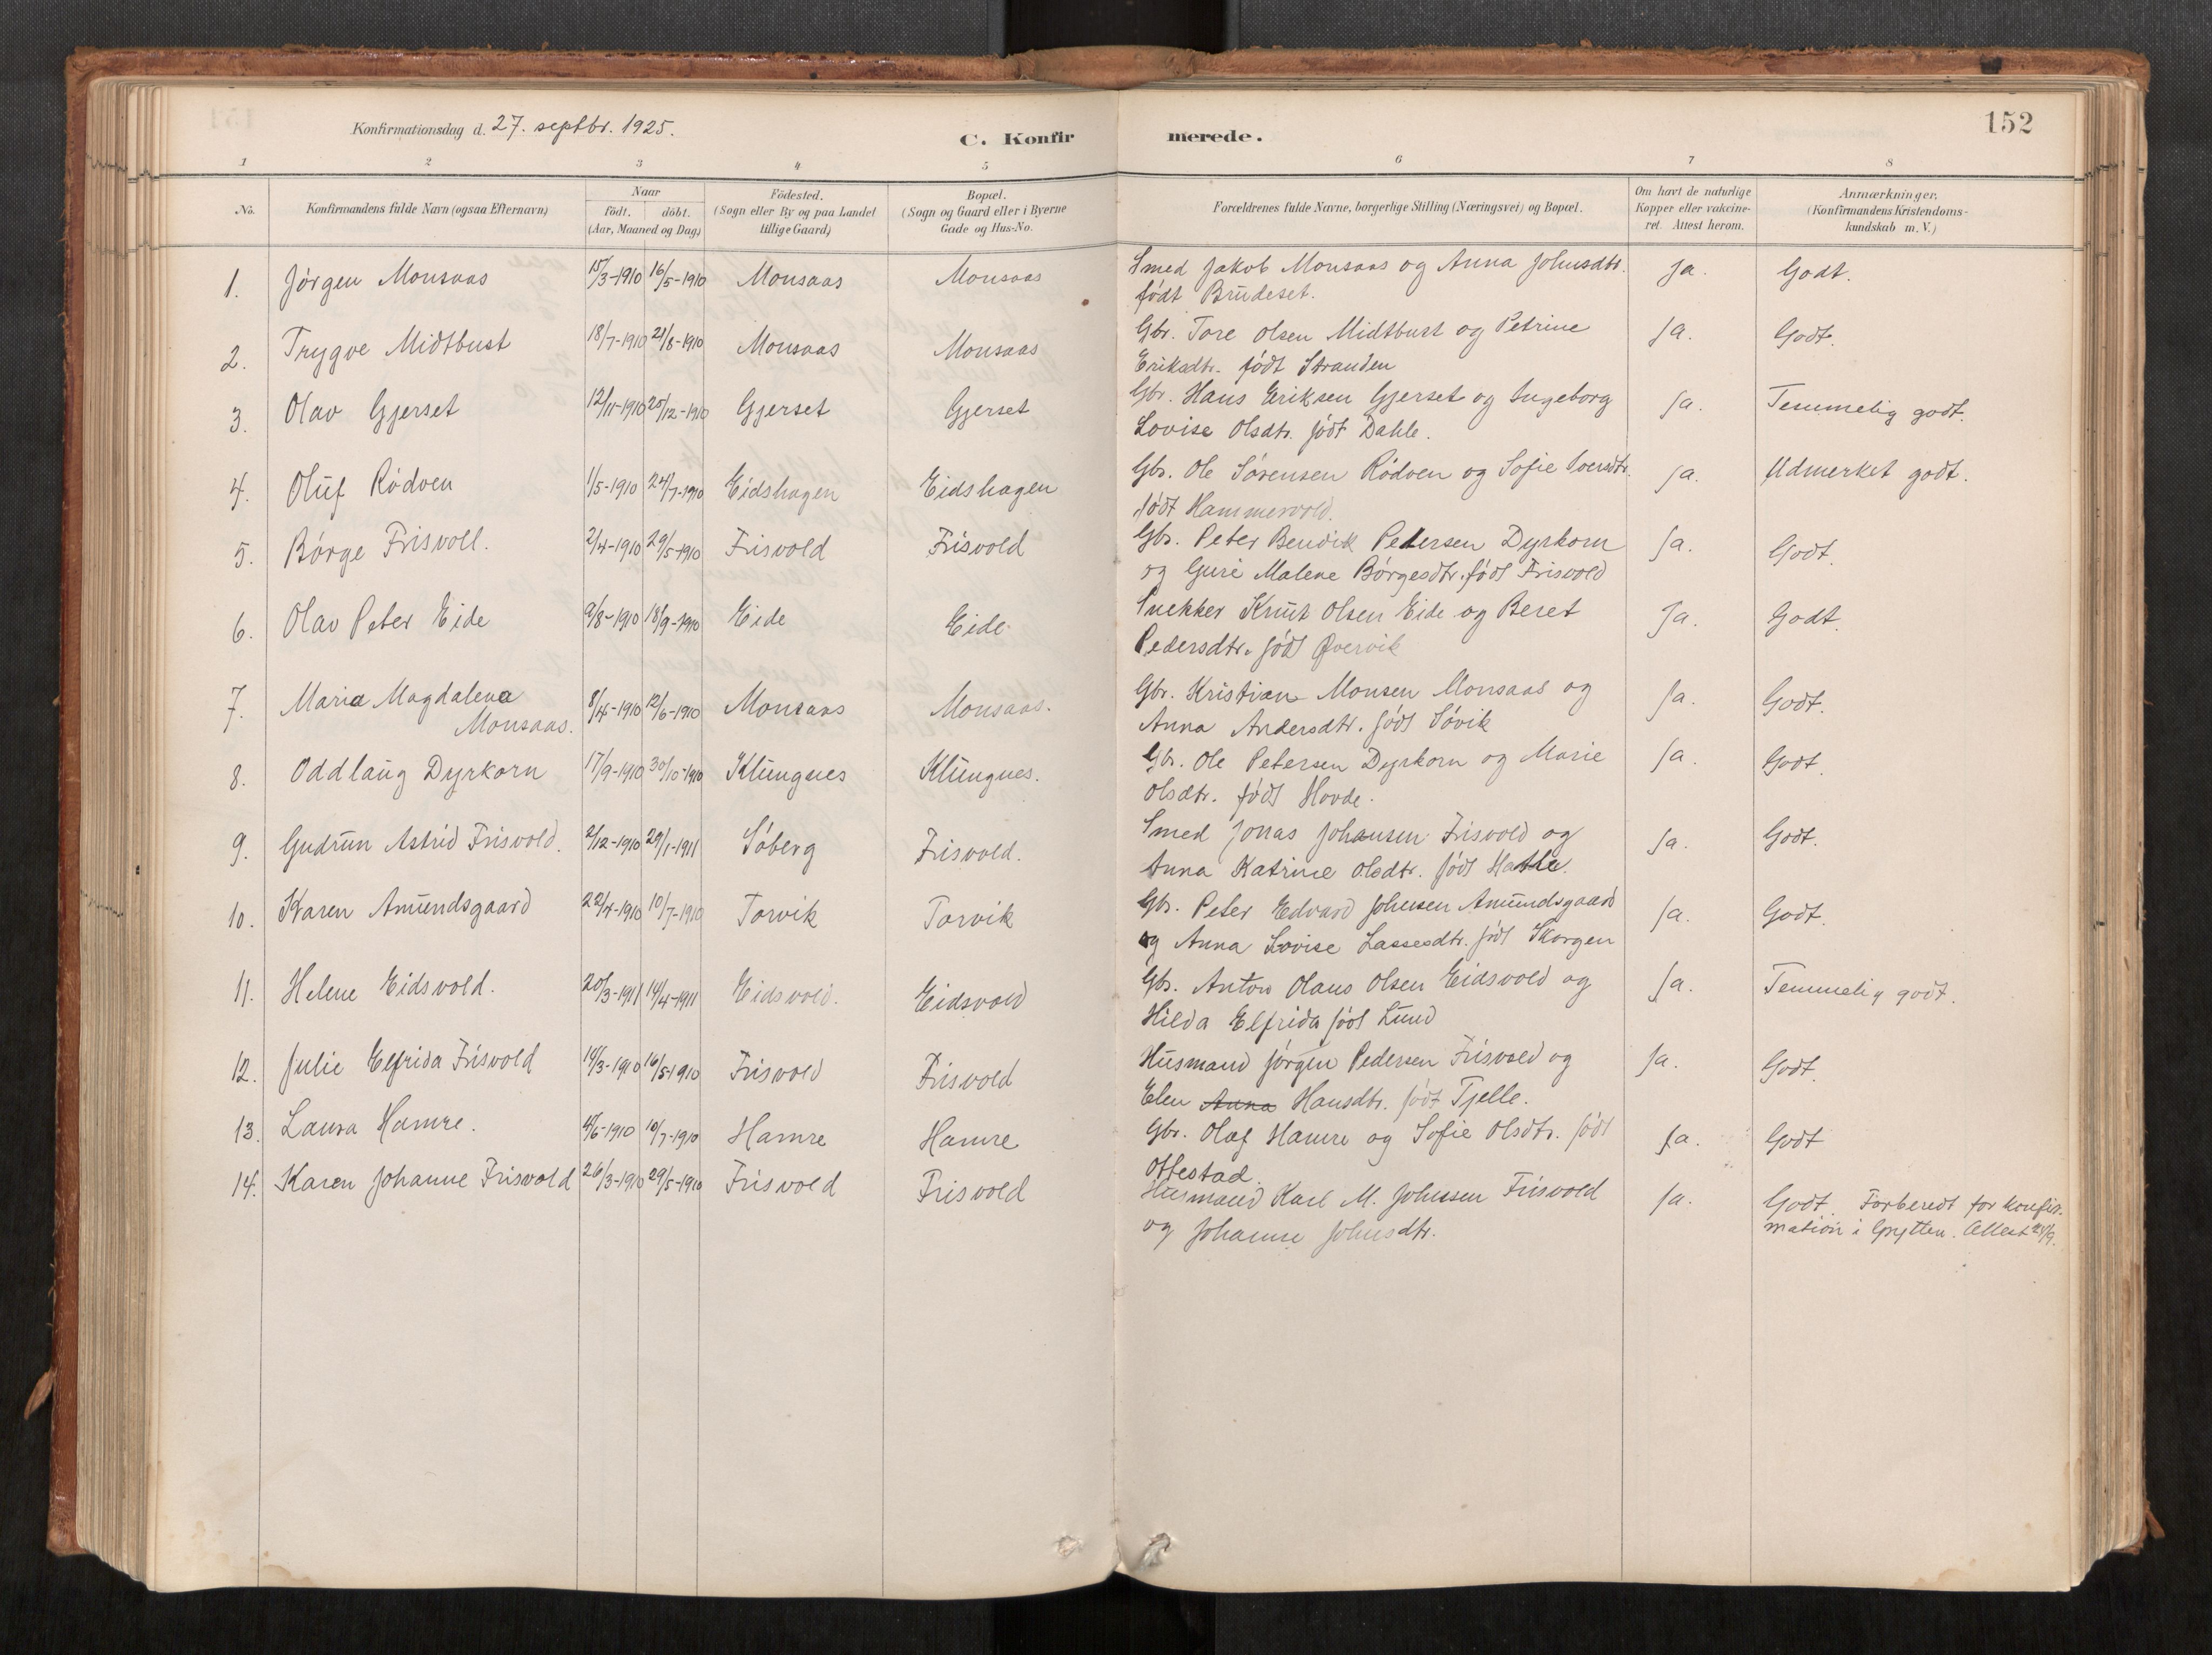 152
Konfirmationsdag d. 27. septbr. 1925.
C. Konfirmerede.
1 2 3 4 5 6 7 8
No. Konfirmandens fulde Navn (ogsaa Efternavn) Naar födt. döbt. (Aar, Maaned og Dag) Födested. (Sogn eller By og paa Landet tillige Gaard) Bopæl. (Sogn og Gaard eller i Byerne Gade og Hus-No. Forældrenes fulde Navne, borgerlige Stilling (Næringsvei) og Bopæl. Om havt de naturlige Kopper eller vakcineret. Attest herom. Anmærkninger. (Konfirmandens Kristendomskundskab m. V.)
1. Jörgen Monsaas 15/3-1910 16/5-1910 Monsaas Monsaas Smed Jakob Monsaas og Anna Johnsdtr. Ja. Godt.
födt Brudeset.
2. Trygve Midtbust 18/7-1910 21/8-1910 Monsaas Monsaas Gbr. Tore Olsen Midtbust og Petrine Ja. Godt.
Eriksdtr. födt Stranden
3. Olav Gjerset 12/11-1910 25/12-1910 Gjerset Gjerset Gbr. Hans Eriksen Gjerset og Ingeborg Ja. Temmelig godt.
Lovise Olsdtr. födt Dahle.
4. Oluf Rödven 1/5-1910 24/7-1910 Eidshagen Eidshagen Gbr. Ole Sörensen Rödven og Sofie Iversdtr. Ja. Udmerket godt.
födt Hammervold.
5. Börge Frisvoll. 2/4-1910 29/5-1910 Frisvold Frisvold Gbr. Peter Bendik Petersen Dyrkorn Ja. Godt.
og Guri Malene Börgesdtr. födt Frisvold
6. Olav Peter Eide 9/8-1910 18/9-1910 Eide Eide Snekker Knut Olsen Eide og Beret Ja. Godt.
Pedersdtr. födt Øvervik
7. Maria Magdalena 8/4-1910 12/6-1910 Monsaas Monsaas. Gbr. Kristian Monsen Monsaas og Ja. Godt.
Monsaas. Anna Andersdtr. födt Sövik
8. Oddlaug Dyrkorn 17/9-1910 30/10-1910 Klungnes Klungnes. Gbr. Ole Petersen Dyrkorn og Marie Ja. Godt.
Olsdtr. födt Hovde.
9. Gudrun Astrid Frisvold. 2/12-1910 29/1-1911 Söberg Frisvold. Smed Jonas Johansen Frisvold og Ja. Godt.
Anna Katrine Olsdtr. födt
10. Karen Amundsgaard 22/4-1910 10/7-1910 Torvik Torvik Gbr. Peter Edvard Johnsen Amundsgaard Ja. Godt.
og Anna Lovise Lassesdtr. födt Skorgen
11. Helene Eidsvold. 20/3-1911 14/4-1911 Eidsvold. Eidsvold Gbr. Anton Olaus Olsen Eidsvold og Ja. Temmelig godt.
Hilda Elfrida födt Lund
12. Julie Elfrida Frisvold 14/3-1910 16/5-1910 Frisvold Frisvold Husmand Jörgen Pedersen Frisvold og Ja. Godt.
Elen Anna Hansdtr. födt Tjelle.
13. Laura Hamre. 4/6-1910 10/7-1910 Hamre Hamre Gbr. Olaf Hamre og Sofie Olsdtr. födt Ja. Godt
Ottestad.
14. Karen Johanne Frisvold 26/3-1910 29/5-1910 Frisvold Frisvold Husmand Karl M. Johnsen Frisvold Ja. Godt. Forberedt for konfir-
og Johanne Johnsdtr. mation i Grytten. Attest 24/9.